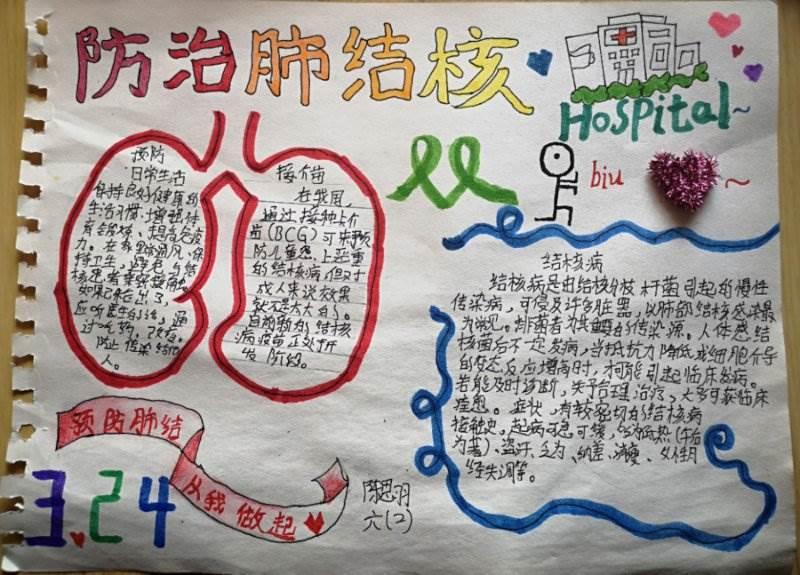 防治肺结核
Hospital~
biu
~
预防
日常生活
保持良好健康的
生活习惯,增强体
育锻炼,提高免疫
力。
防止传染给他
人。
接介苗
在我国,
通过接种卡介
苗(BCG)可来预
防儿童患上严重
的结核病但对
成人来说效果
就不是太大的。
目前新的结核
病疫苗正处于开
发阶段。
结核病
结核病是由结核分枝杆菌引起的慢性
传染病,可侵及许多脏器,以肺部结核感染最
为常见。排菌者为其重要的传染源。人体感结
核菌后不一定发病,当抵抗力降低或细胞介导
的变态反应增高时,才可能引起临床发病。
若能及时诊断,失予合理治疗,大多可获临床
痊愈。症状,有较密切的结核病
接触史,起病可急可缓,
为著)、盗汗、乏力、纳差、消瘦、女性月
经失调等。
预防肺结
从我做起
3.24
六(2)